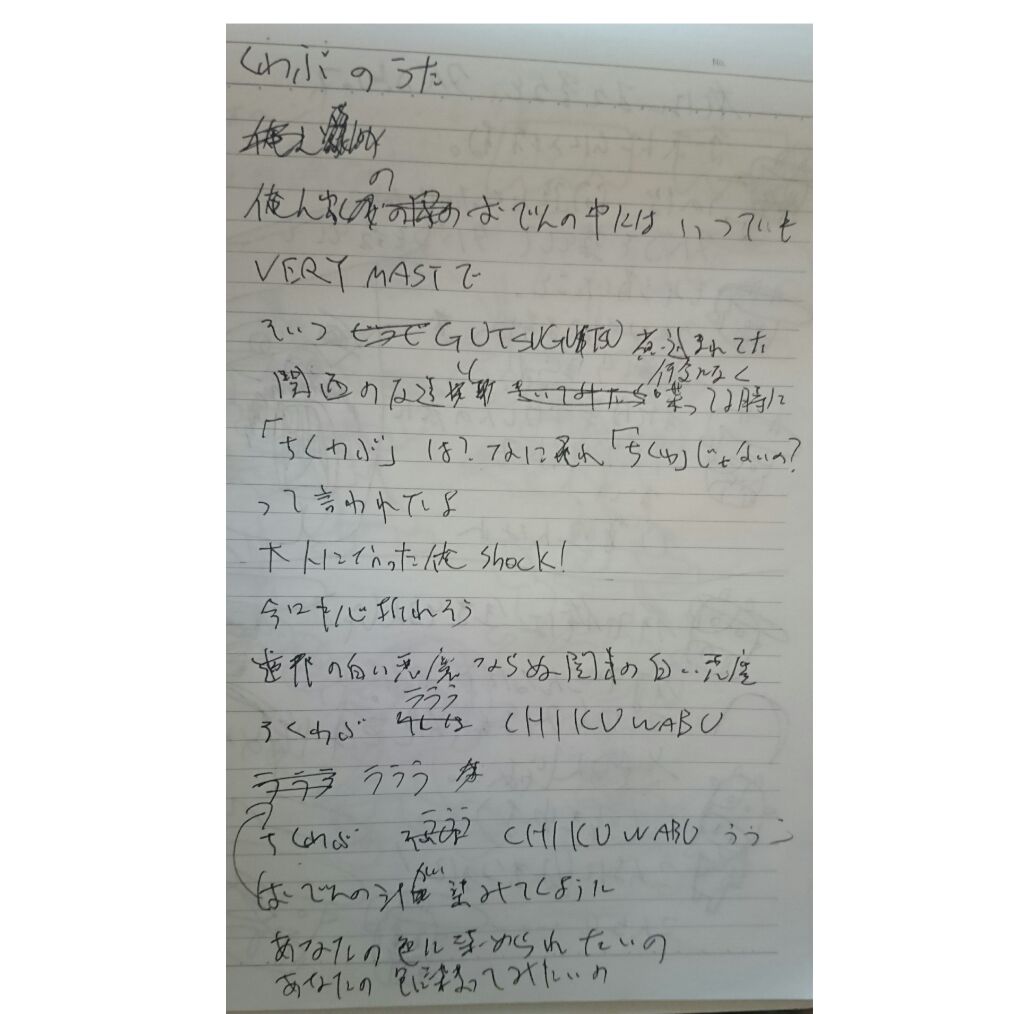 くわぶのうた
俺ん家の おでんの中には いつでも
VERY MASTで
そいつ GUTSUGUTSU 煮込まれてた
関西の友達と 何気なく 喋ってる時に
「ちくわぶ」は？なにそれ「ちくわ」じゃないの？
って言われたよ
大人になった俺 shock!
今にも心折れそう
世界の白い悪魔ならぬ関東の白い悪魔
ちくわぶ ラララ CHIKUWABU
ラララ ラララ
ちくわぶ ラララ CHIKUWABU ララ
おでんの汁が 染みてくように
あなたの色に染められたいの
あなたの色に染まってみたいの